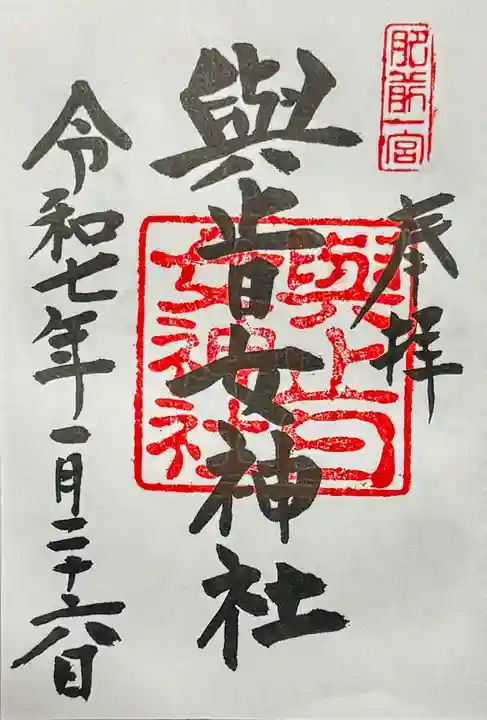 肥前一宮
奉拝
與止日女神社
與止日
女神社
令和七年一月二十六日